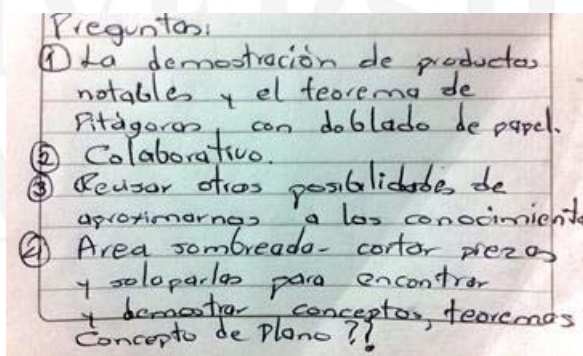 Preguntas:
① La demostración de productos
notables y el teorema de
Pitágoras, con doblado de papel.
② Colaborativo.
③ Revisar otras posibilidades de
aproximarnos a los conocimiento
④ Area sombreada - cortar piezas
y solaparlas para encontrar
y demostrar conceptos, teoremas
Concepto de Plano ??